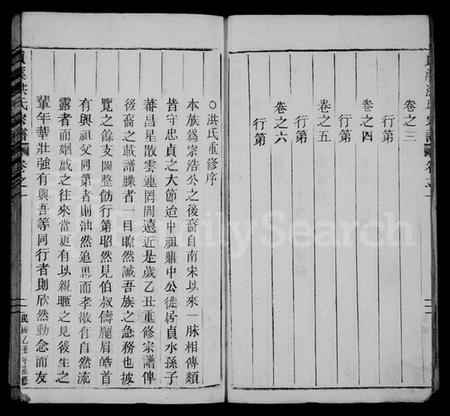 卷之三
行第
卷之四
行第
卷之五
行第
卷之六
行第
○洪氏重修序
本族為宗浩公之後裔自南宋以來一脉相傳類
皆守忠貞之大節迨中祖騂中公徒居貞水孫子
蕃昌星散雲連罔周遠近是歲乙丑重修宗譜俾
後裔之載譜牒者一目瞭然誠吾族之急務也披
覽之餘支圖整飭行第昭然見伯叔儔龎眉皓首
有與祖父同第者則油然追思而孝敬有自然流
露者而姻戚之往來當更有以親睚之見後生之
輩年華壯強有與吾等同行者則欣然動念而友
洪氏宗譜
卷之一
FamilySearch